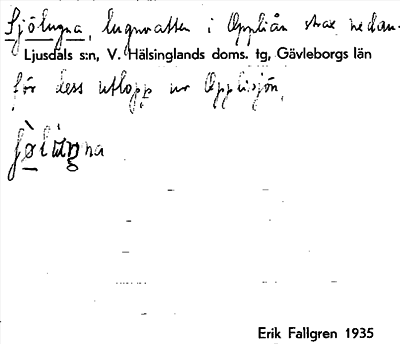 Sjölugna, lugnvatten i Oppliån strax nedan-
Ljusdals s:n, V. Hälsinglands doms. tg, Gävleborgs län
för dess utlopp ur Opplisjön.
Erik Fallgren 1935